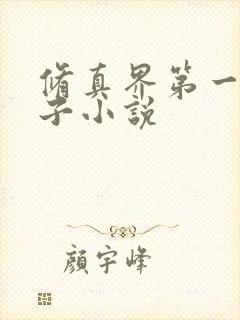 脩真界第一
子小說
顏宇峰